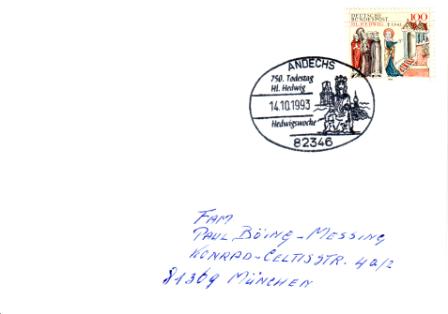 DEUTSCHE
BUNDESPOST
HL. HEDWIG † 1243
100
ANDECHS
750. Todestag
Hl. Hedwig
14.10.1993
Hedwigswoche
82346
FAM
PAUL BÖING-MESSING
KONRAD-CELTISSTR. 40/2
81369 MÜNCHEN